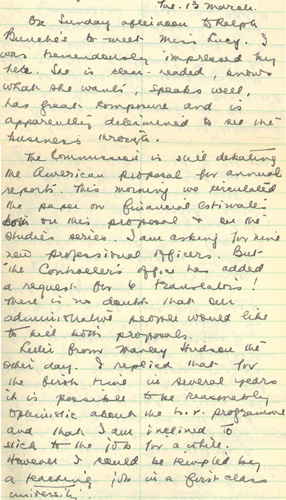 Tue. 13 March.
On Sunday afternoon to Ralph
Bunche's to meet Miss Lucy. I
was tremendously impressed by
her. She is clear-headed, knows
what she wants, speaks well,
has great composure and is
apparently determined to see the
business through.
The Commission is still debating
the American proposal for annual
reports. This morning we circulated
the paper on financial estimates
both on this proposal & on the
studies series. I am asking for nine
new professional officers. But
the Controller's office has added
a request for 6 translators!
There is no doubt that our
administrative people would like
to kill both proposals.
Letter from Manley Hudson the
other day. I replied that for
the first time in several years
it is possible to be reasonably
optimistic about the h.r. programme
and that I am inclined to
stick to the job for a while.
However I could be tempted by
a teaching job in a first class
university.